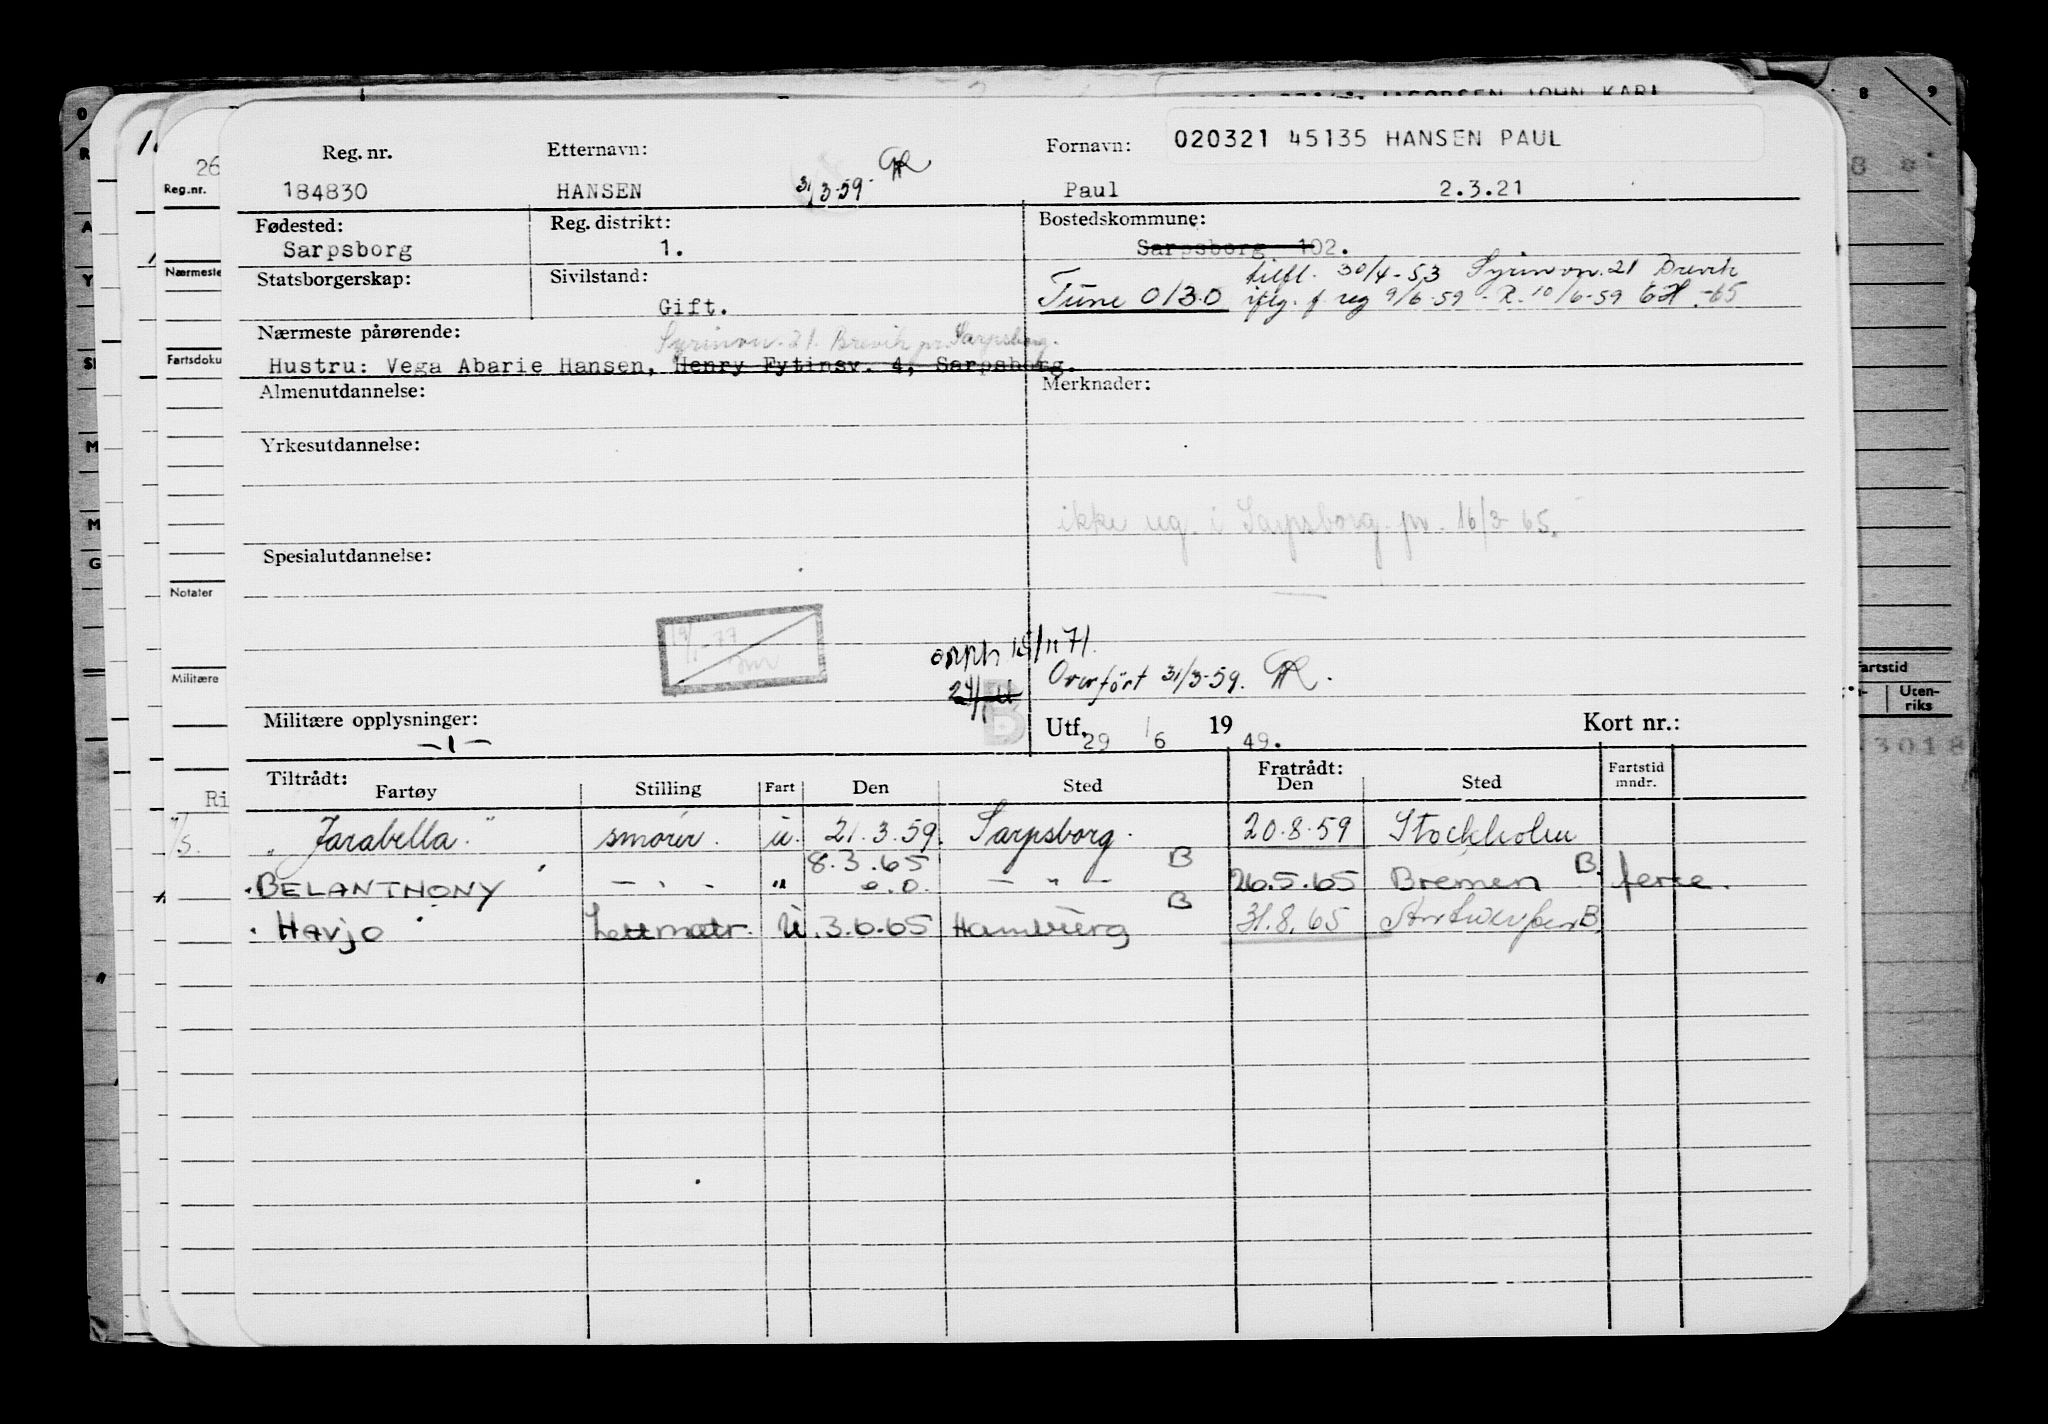 JACOBSEN JOHN KARL
020321 45135 HANSEN PAUL
Reg. nr. Etternavn: Fornavn:
184830 HANSEN 31/3-59 Paul 2.3.21
Fødested: Reg. distrikt: Bostedskommune:
Sarpsborg 1. Sarpsborg 102.
Statsborgerskap: Sivilstand: tilfl. 30/4-53 Syrinvn. 21 Brevik
Gift. Tune 0130 iflg. f. reg 9/6-59 - R. 10/6-59 -65
Nærmeste pårørende: Syrinvn. 21. Brevik pr. Sarpsborg.
Hustru: Vega Abarie Hansen, Henry Fytinsv. 4, Sarpsborg.
Almenutdannelse: Merknader:
Yrkesutdannelse:
ikke reg. i Sarpsborg pr. 16/3 65.
Spesialutdannelse:
opph 15/11 71.
Overført 31/3-59.
B
Militære opplysninger: Utf. 29/6 1949. Kort nr.:
-1-
Tiltrådt: Fratrådt: Fartstid
Fartøy Stilling Fart Den Sted Den Sted mndr.
"Jarabella." smører. u. 21.3.59. Sarpsborg. 20.8.59 Stockholm
BELANTHONY - " - " 8.3.65 o.o. - " - B 26.5.65 Bremen B. ferie.
Havjo Lettmatr. U. 3.6.65 Hamburg B 31.8.65 Antwerpen B.
26
Reg.nr.
Nærmeste
Fartsdoku
Notater
Militære
Ri
0
R
A
Y
M
M
G
8 9
8 8
Fartstid
Uten-
riks
3018